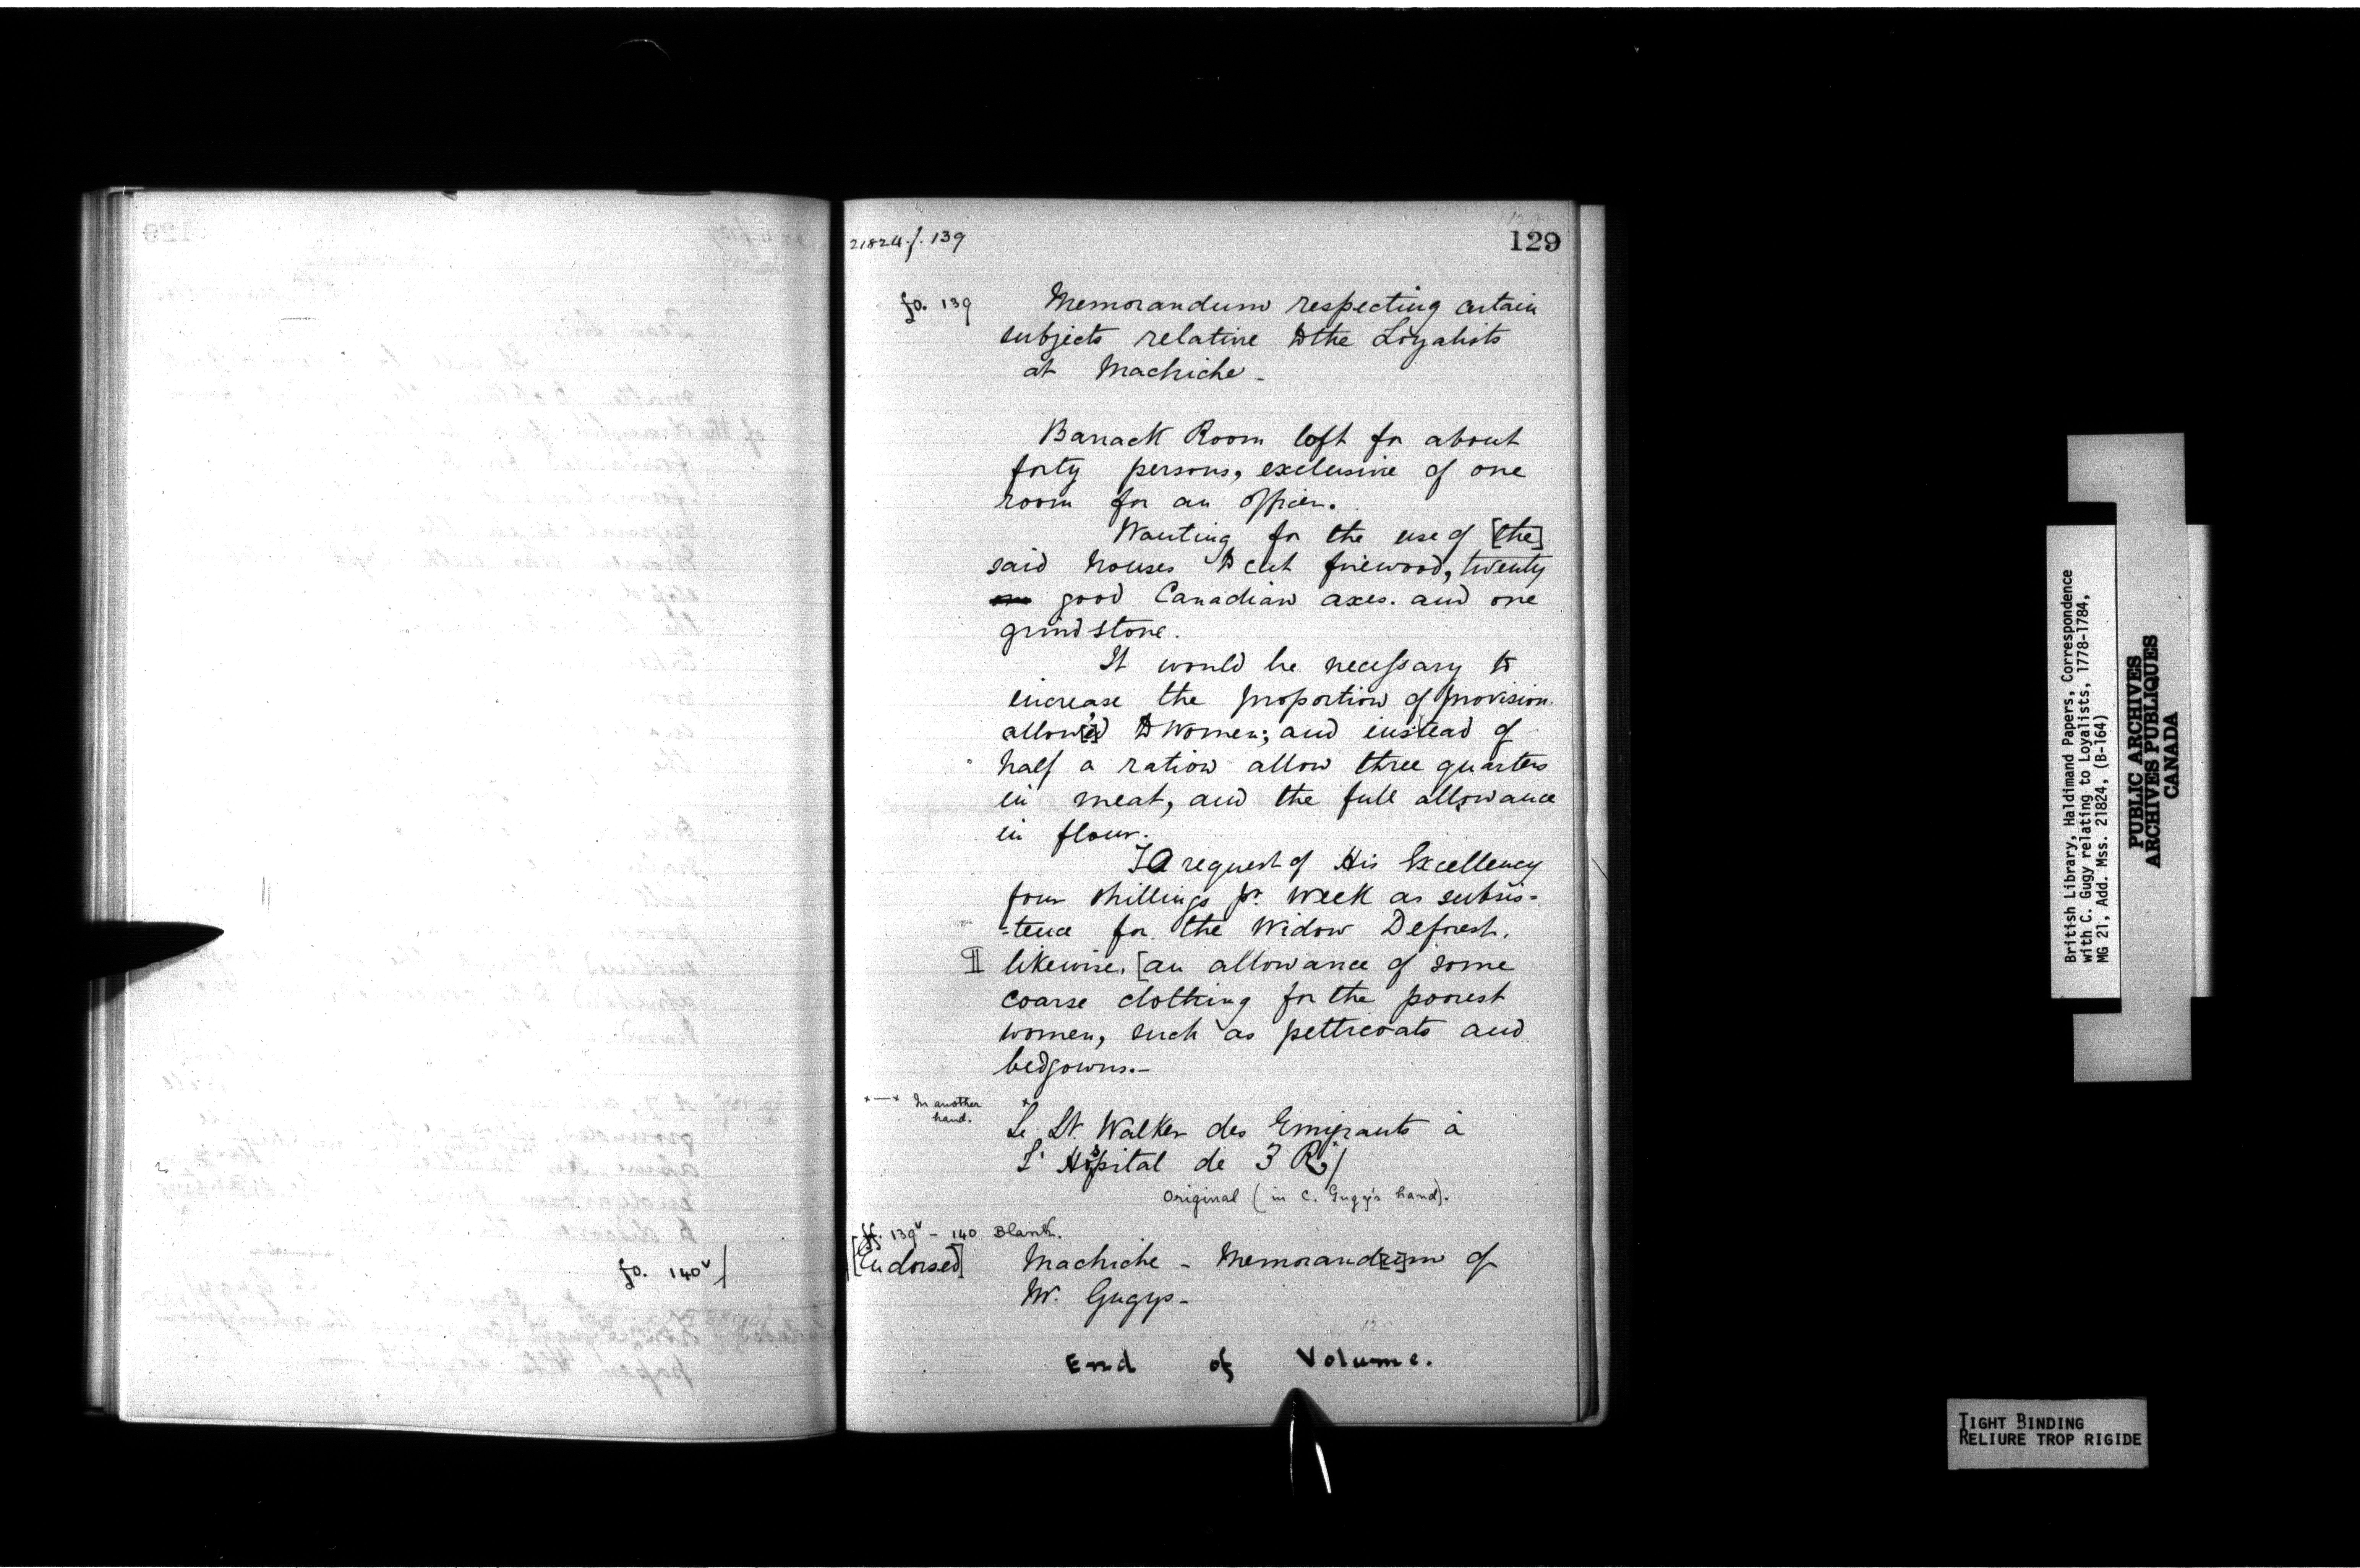 21824. f. 139
129
fo. 139
Memorandum respecting certain
subjects relative to the Loyalists
at Machiche -
Barrack Room loft for about
forty persons, exclusive of one
room for an officer.
Wanting for the use of [the]
said houses to cut firewood, twenty
good Canadian axes. and one
grindstone.
It would be necessary to
increase the proportion of provision
allow[e]d to Women; and instead of
half a ration allow three quarters
in meat, and the full allowance
in flour.
To request of His Excellency
four shillings pr. week as subsis-
-tence for the Widow Deforest.
likewise, [an allowance of some
coarse clothing for the poorest
women, such as petticoats and
bedgowns.-
x—x In another
hand.
x Le Lt. Walker des Emigrants à
L' Hôpital de 3 R
Original (in C. Gugy's hand).
ff. 139v - 140 Blank.
fo. 140v
[Endorsed] Machiche - Memorand[u]m of
Mr. Gugys -
End of Volume.
British Library, Haldimand Papers, Correspondence
with C. Gugy relating to Loyalists, 1778-1784,
MG 21, Add. Mss. 21824, (B-164)
PUBLIC ARCHIVES
ARCHIVES PUBLIQUES
CANADA
TIGHT BINDING
RELIURE TROP RIGIDE